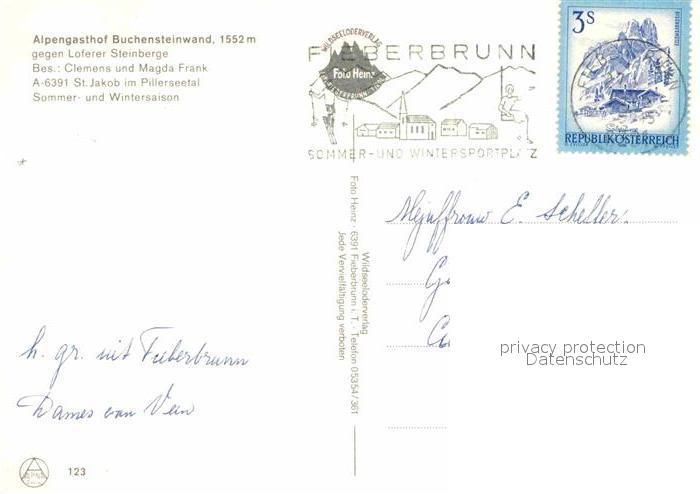 Alpengasthof Buchensteinwand, 1552 m
gegen Loferer Steinberge
Bes.: Clemens und Magda Frank
A-6391 St. Jakob im Pillerseetal
Sommer- und Wintersaison
WILDSEELODERVERLAG
Foto Heinz
FIEBERBRUNN
SOMMER- UND WINTERSPORTPLATZ
3 S
REPUBLIK ÖSTERREICH
Wildseeloderverlag
Foto Heinz · 6391 Fieberbrunn i. T. · Telefon 05354/361
Jede Vervielfältigung verboten
Mejuffrouw E. Scheller.
G
C
privacy protection
Datenschutz
h. gr. uit Fieberbrunn
Dames van Vein
123